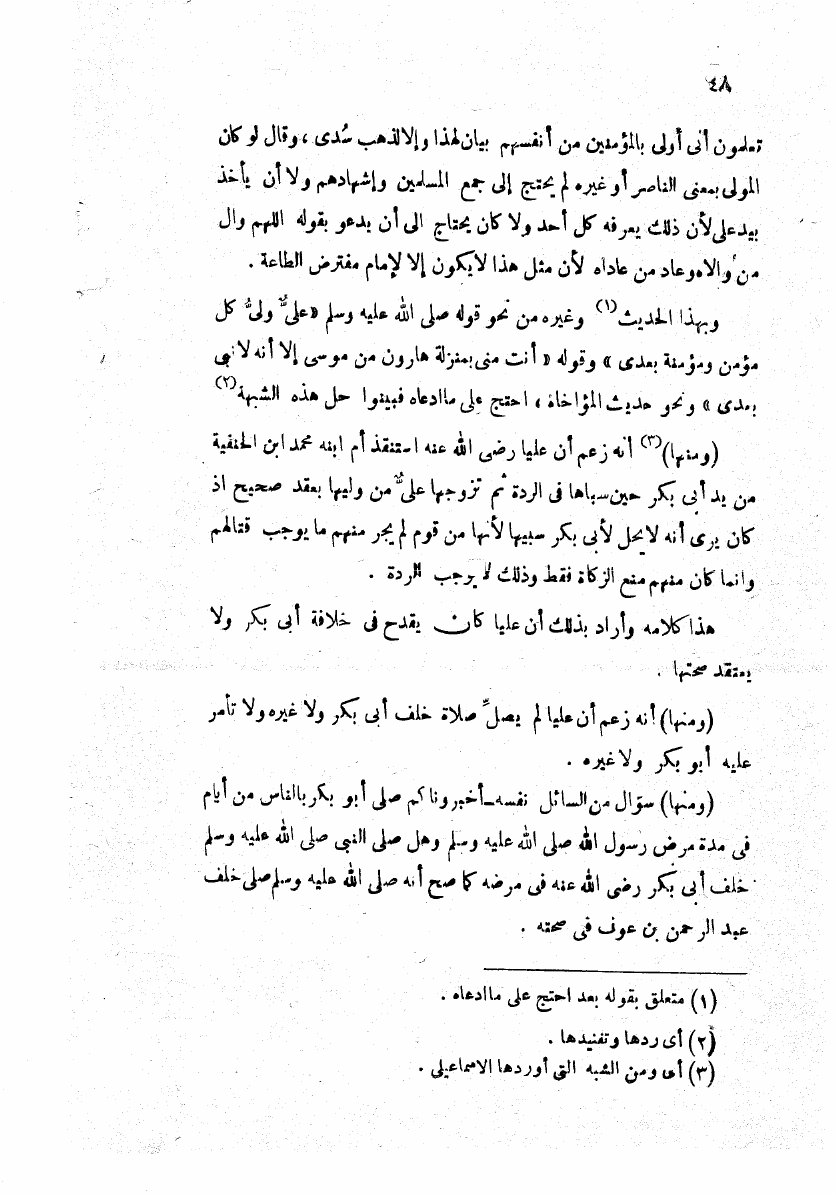 ٤٨
تعلمون أنى أولى بالمؤمنين من أنفسهم بيان لهذا وإلا لذهب سُدى ، وقال لو كان
المولى بمعنى الناصر أو غيره لم يحتج إلى جمع المسلمين وإشهادهم ولا أن يأخذ
بيد على لأن ذلك يعرفه كل أحد ولا كان يحتاج الى أن يدعو بقوله اللهم وال
من والاه وعاد من عاداه لأن مثل هذا لا يكون إلا لإمام مفترض الطاعة .
وبهذا الحديث(١) وغيره من نحو قوله صلى الله عليه وسلم «علىٌّ ولىُّ كل
مؤمن ومؤمنة بعدى » وقوله « أنت منى بمنزلة هارون من موسى إلا أنه لا نبى
بعدى » ونحو حديث المؤاخاة ، احتج على ما ادعاه فبينوا حل هذه الشبهة(٢)
(ومنها)(٣) أنه زعم أن عليا رضى الله عنه استنقذ أم ابنه محمد ابن الحنفية
من يد أبى بكر حين سباها فى الردة ثم تزوجها علىٌّ من وليها بعقد صحيح اذ
كان يرى أنه لا يحل لأبى بكر سبيها لأنها من قوم لم يجر منهم ما يوجب قتالهم
وانما كان منهم منع الزكاة فقط وذلك لا يوجب الردة .
هذا كلامه وأراد بذلك أن عليا كان يقدح فى خلافة أبى بكر ولا
يعتقد صحتها .
(ومنها) أنه زعم أن عليا لم يصلِّ صلاة خلف أبى بكر ولا غيره ولا تأمر
عليه أبو بكر ولا غيره .
(ومنها) سؤال من السائل نفسه ـ أخبرونا كم صلى أبو بكر بالناس من أيام
فى مدة مرض رسول الله صلى الله عليه وسلم وهل صلى النبى صلى الله عليه وسلم
خلف أبى بكر رضى الله عنه فى مرضه كما صح أنه صلى الله عليه وسلم صلى خلف
عبد الرحمن بن عوف فى صحته .
(١) متعلق بقوله بعد احتج على ما ادعاه .
(٢) أى ردها وتفنيدها .
(٣) أى ومن الشبه التى أوردها الاسماعيلى .